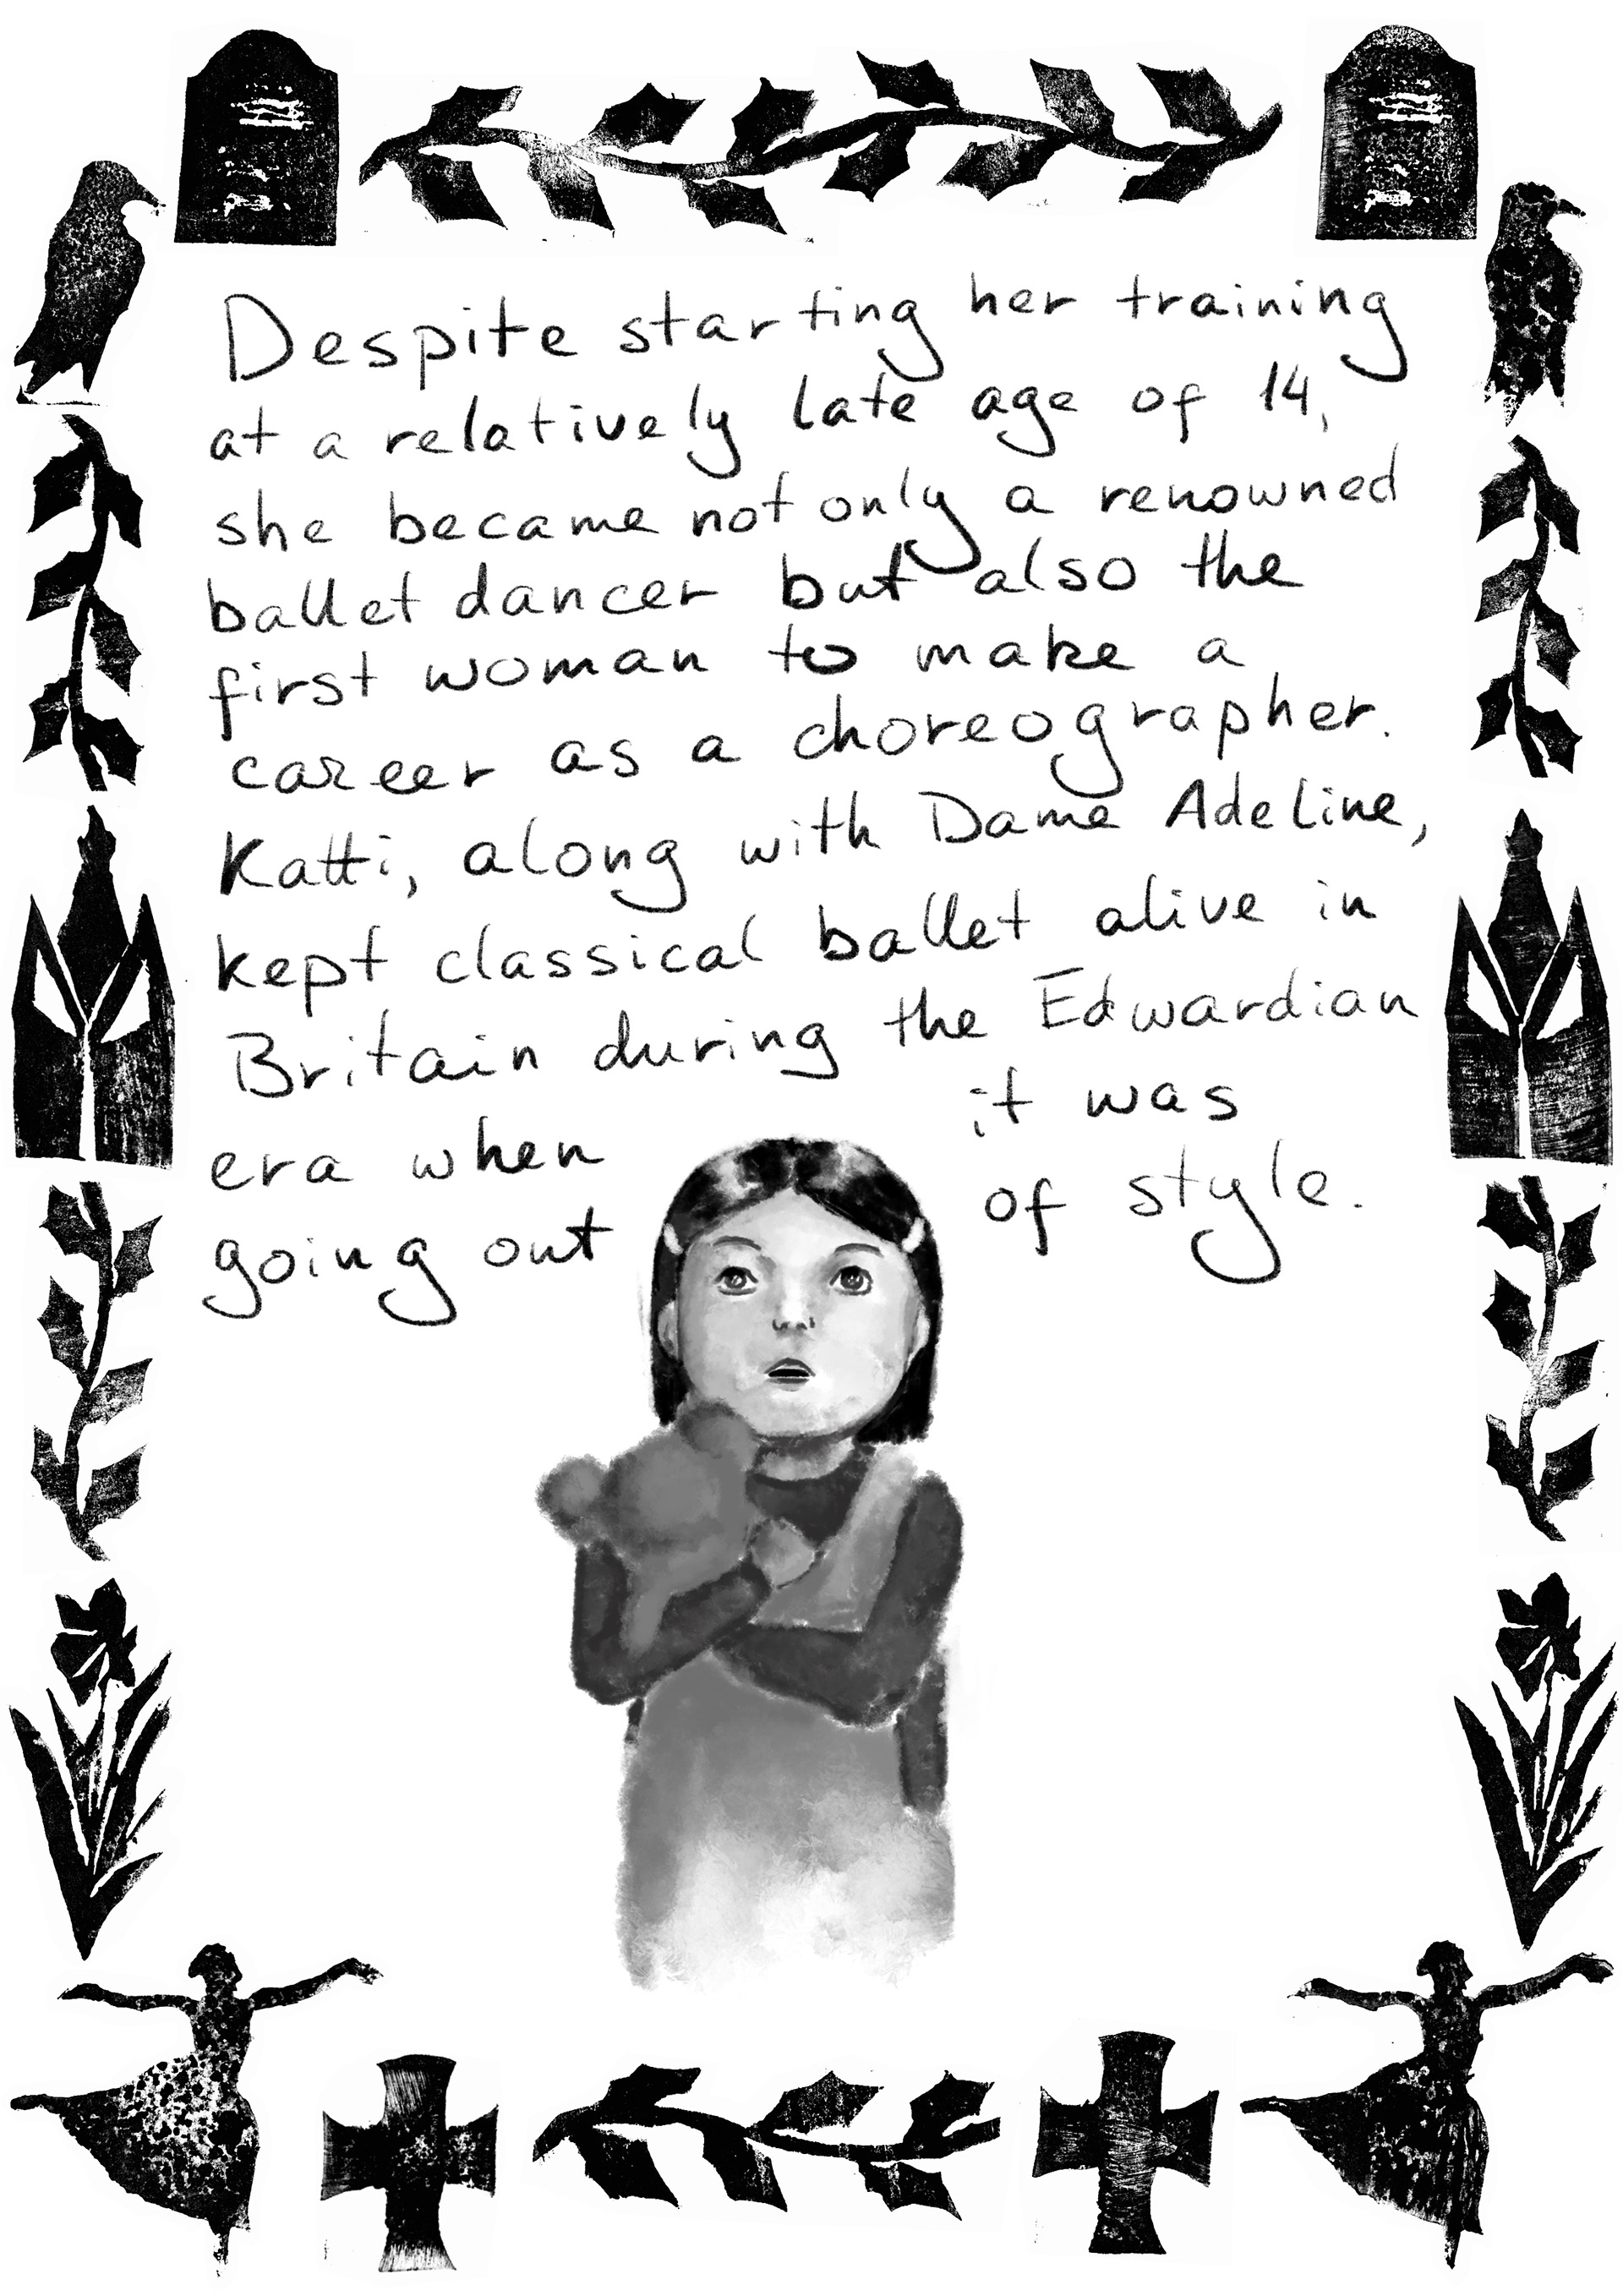 Despite starting her training
at a relatively late age of 14,
she became not only a renowned
ballet dancer but also the
first woman to make a
career as a choreographer.
Katti, along with Dame Adeline,
kept classical ballet alive in
Britain during the Edwardian
era when it was
going out of style.